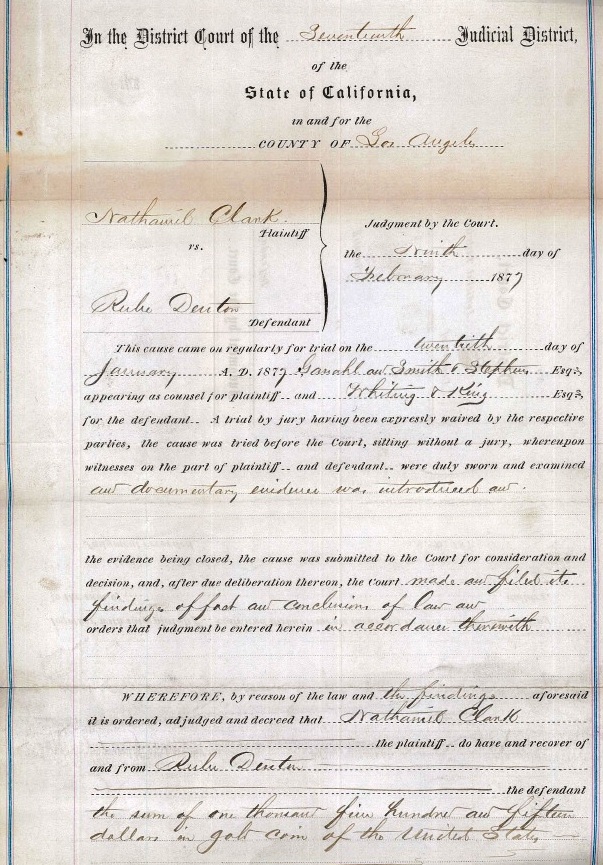 In the District Court of the Seventeenth Judicial District,
of the
State of California,
in and for the
COUNTY OF Los Angeles
Nathaniel Clark.
Plaintiff
vs.
Rube Denton
Defendant
Judgment by the Court.
the Ninth day of
February 1877
This cause came on regularly for trial on the twentieth day of
January A. D. 1877 Ganahl and Smith & Stephens Esqs,
appearing as counsel for plaintiff and Whiting & King Esqs,
for the defendant A trial by jury having been expressly waived by the respective
parties, the cause was tried before the Court, sitting without a jury, whereupon
witnesses on the part of plaintiff and defendant were duly sworn and examined
and documentary evidence was introduced and.
the evidence being closed, the cause was submitted to the Court for consideration and
decision, and, after due deliberation thereon, the Court made and filed its
findings of fact and conclusions of law and
orders that judgment be entered herein in accordance therewith
WHEREFORE, by reason of the law and the findings aforesaid
it is ordered, adjudged and decreed that Nathaniel Clark
the plaintiff do have and recover of
and from Rube Denton
the defendant
the sum of one thousand five hundred and fifteen
dollars in gold coin of the United States